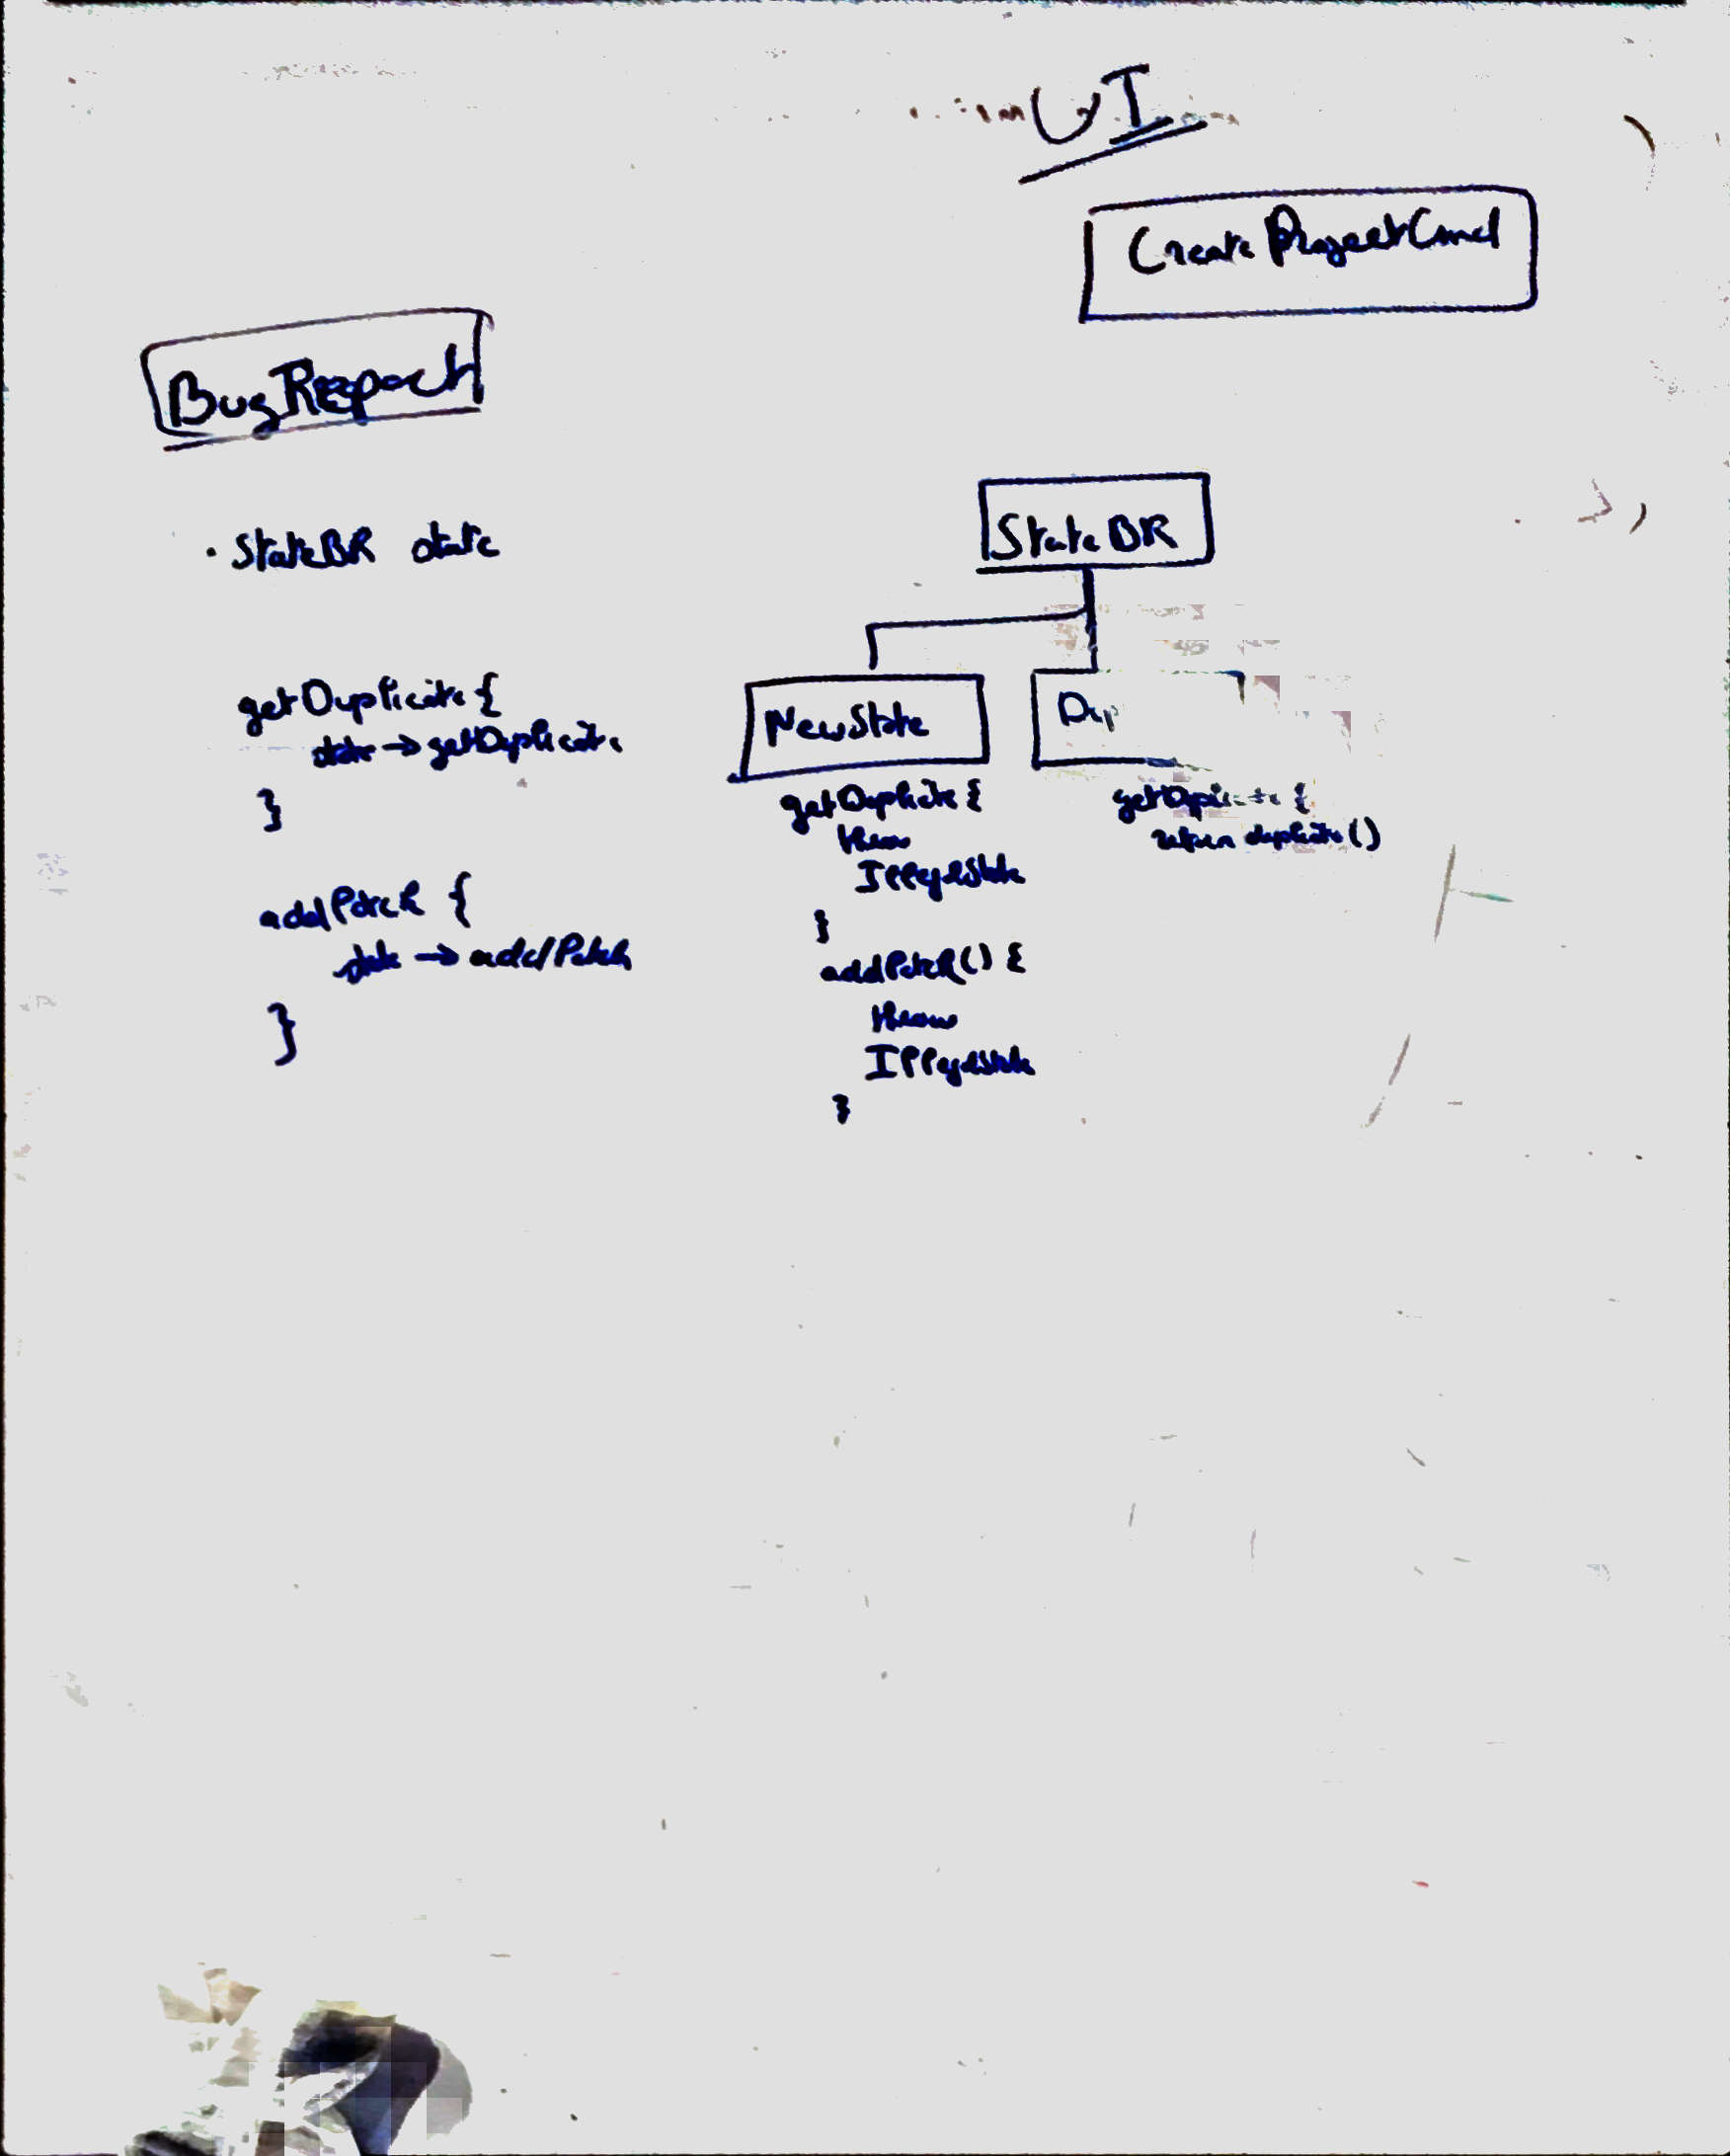 UI
CreateProjectCmd
BugReport
. StateBR state
StateBR
getDuplicate {
state → getDuplicate
}
addPatch {
state → addPatch
}
NewState
getDuplicate {
throw
IllegalState
}
addPatch() {
throw
IllegalState
}
Dup
getDuplicate {
return duplicate()